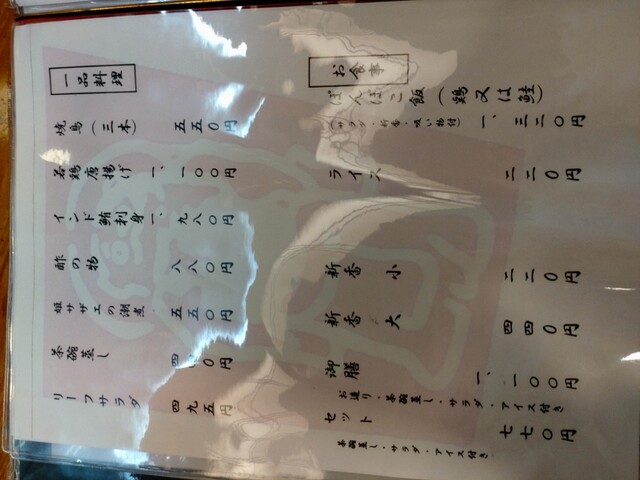 お食事
ぽんぽこ飯（鶏又は鮭） 一、三二〇円
（サラダ・新香・吸い物付）
ライス 二二〇円
新香 小 二二〇円
新香 大 四四〇円
御膳 一、一〇〇円
お造り・茶碗蒸し・サラダ・アイス付き
セット 七七〇円
茶碗蒸し・サラダ・アイス付き
一品料理
焼鳥（三本） 五五〇円
若鶏唐揚げ 一、一〇〇円
インド鮪刺身 一、九八〇円
酢の物 八八〇円
姫サザエの潮煮 五五〇円
茶碗蒸し 四 〇円
リーフサラダ 四九五円